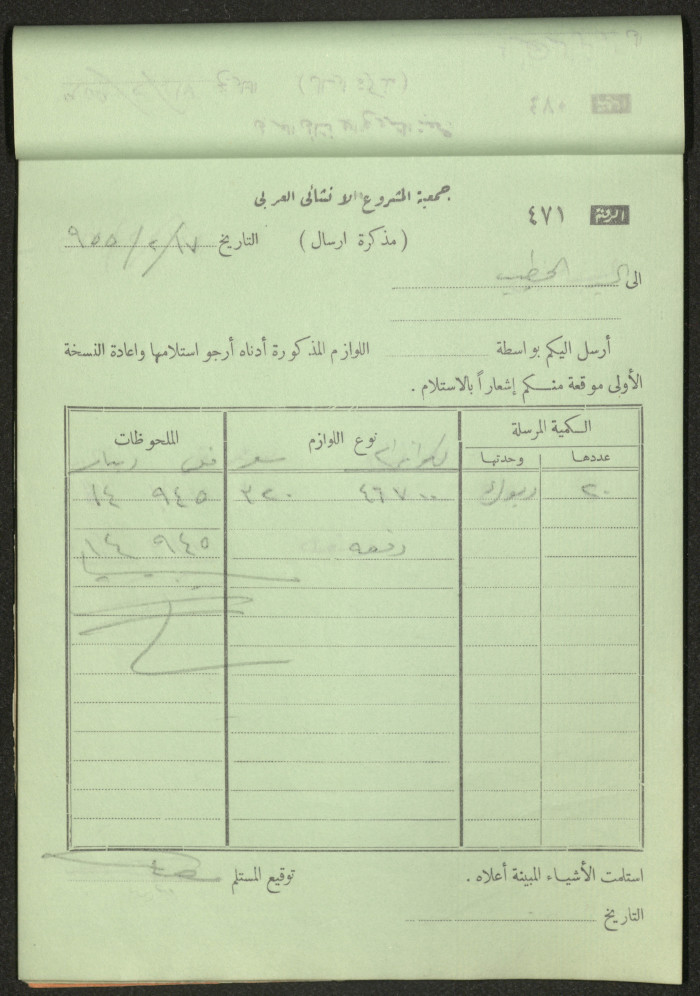 جمعية المشروع الانشائي العربي
الرقم ٤٧١
(مذكرة ارسال)
التاريخ ١٧/٢/٩٥٥
الى الخطيب
أرسل اليكم بواسطة اللوازم المذكورة أدناه أرجو استلامها واعادة النسخة
الأولى موقعة منكم إشعاراً بالاستلام .
الكمية المرسلة نوع اللوازم الملحوظات
عددها وحدتها كيلوغرام سعر فلس دينار
٢٠ ٤٦٧٠٠ ٣٢٠ ٩٤٥ ١٤
٩٤٥ ١٤
استلمت الأشياء المبينة أعلاه . توقيع المستلم
التاريخ